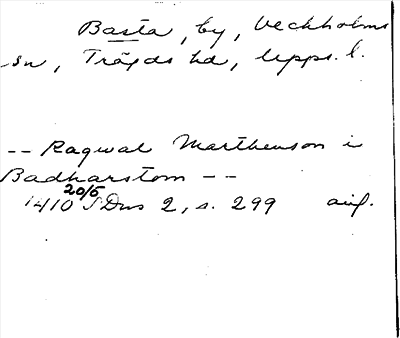 Basta, by, Veckholms
sn, Trögds hd, Upps. l.
-- Ragwal Marthenson i
Badharstom --
1410 20/5 SDns 2, s. 299 avf.